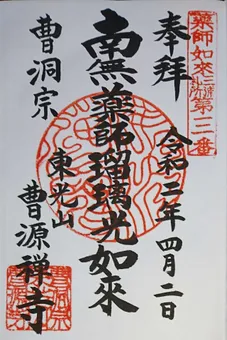 奉拜
令和二年四月二日
南無藥師瑠璃光如來
東光山
曹洞宗
曹源禅寺
藥師如來
第三番